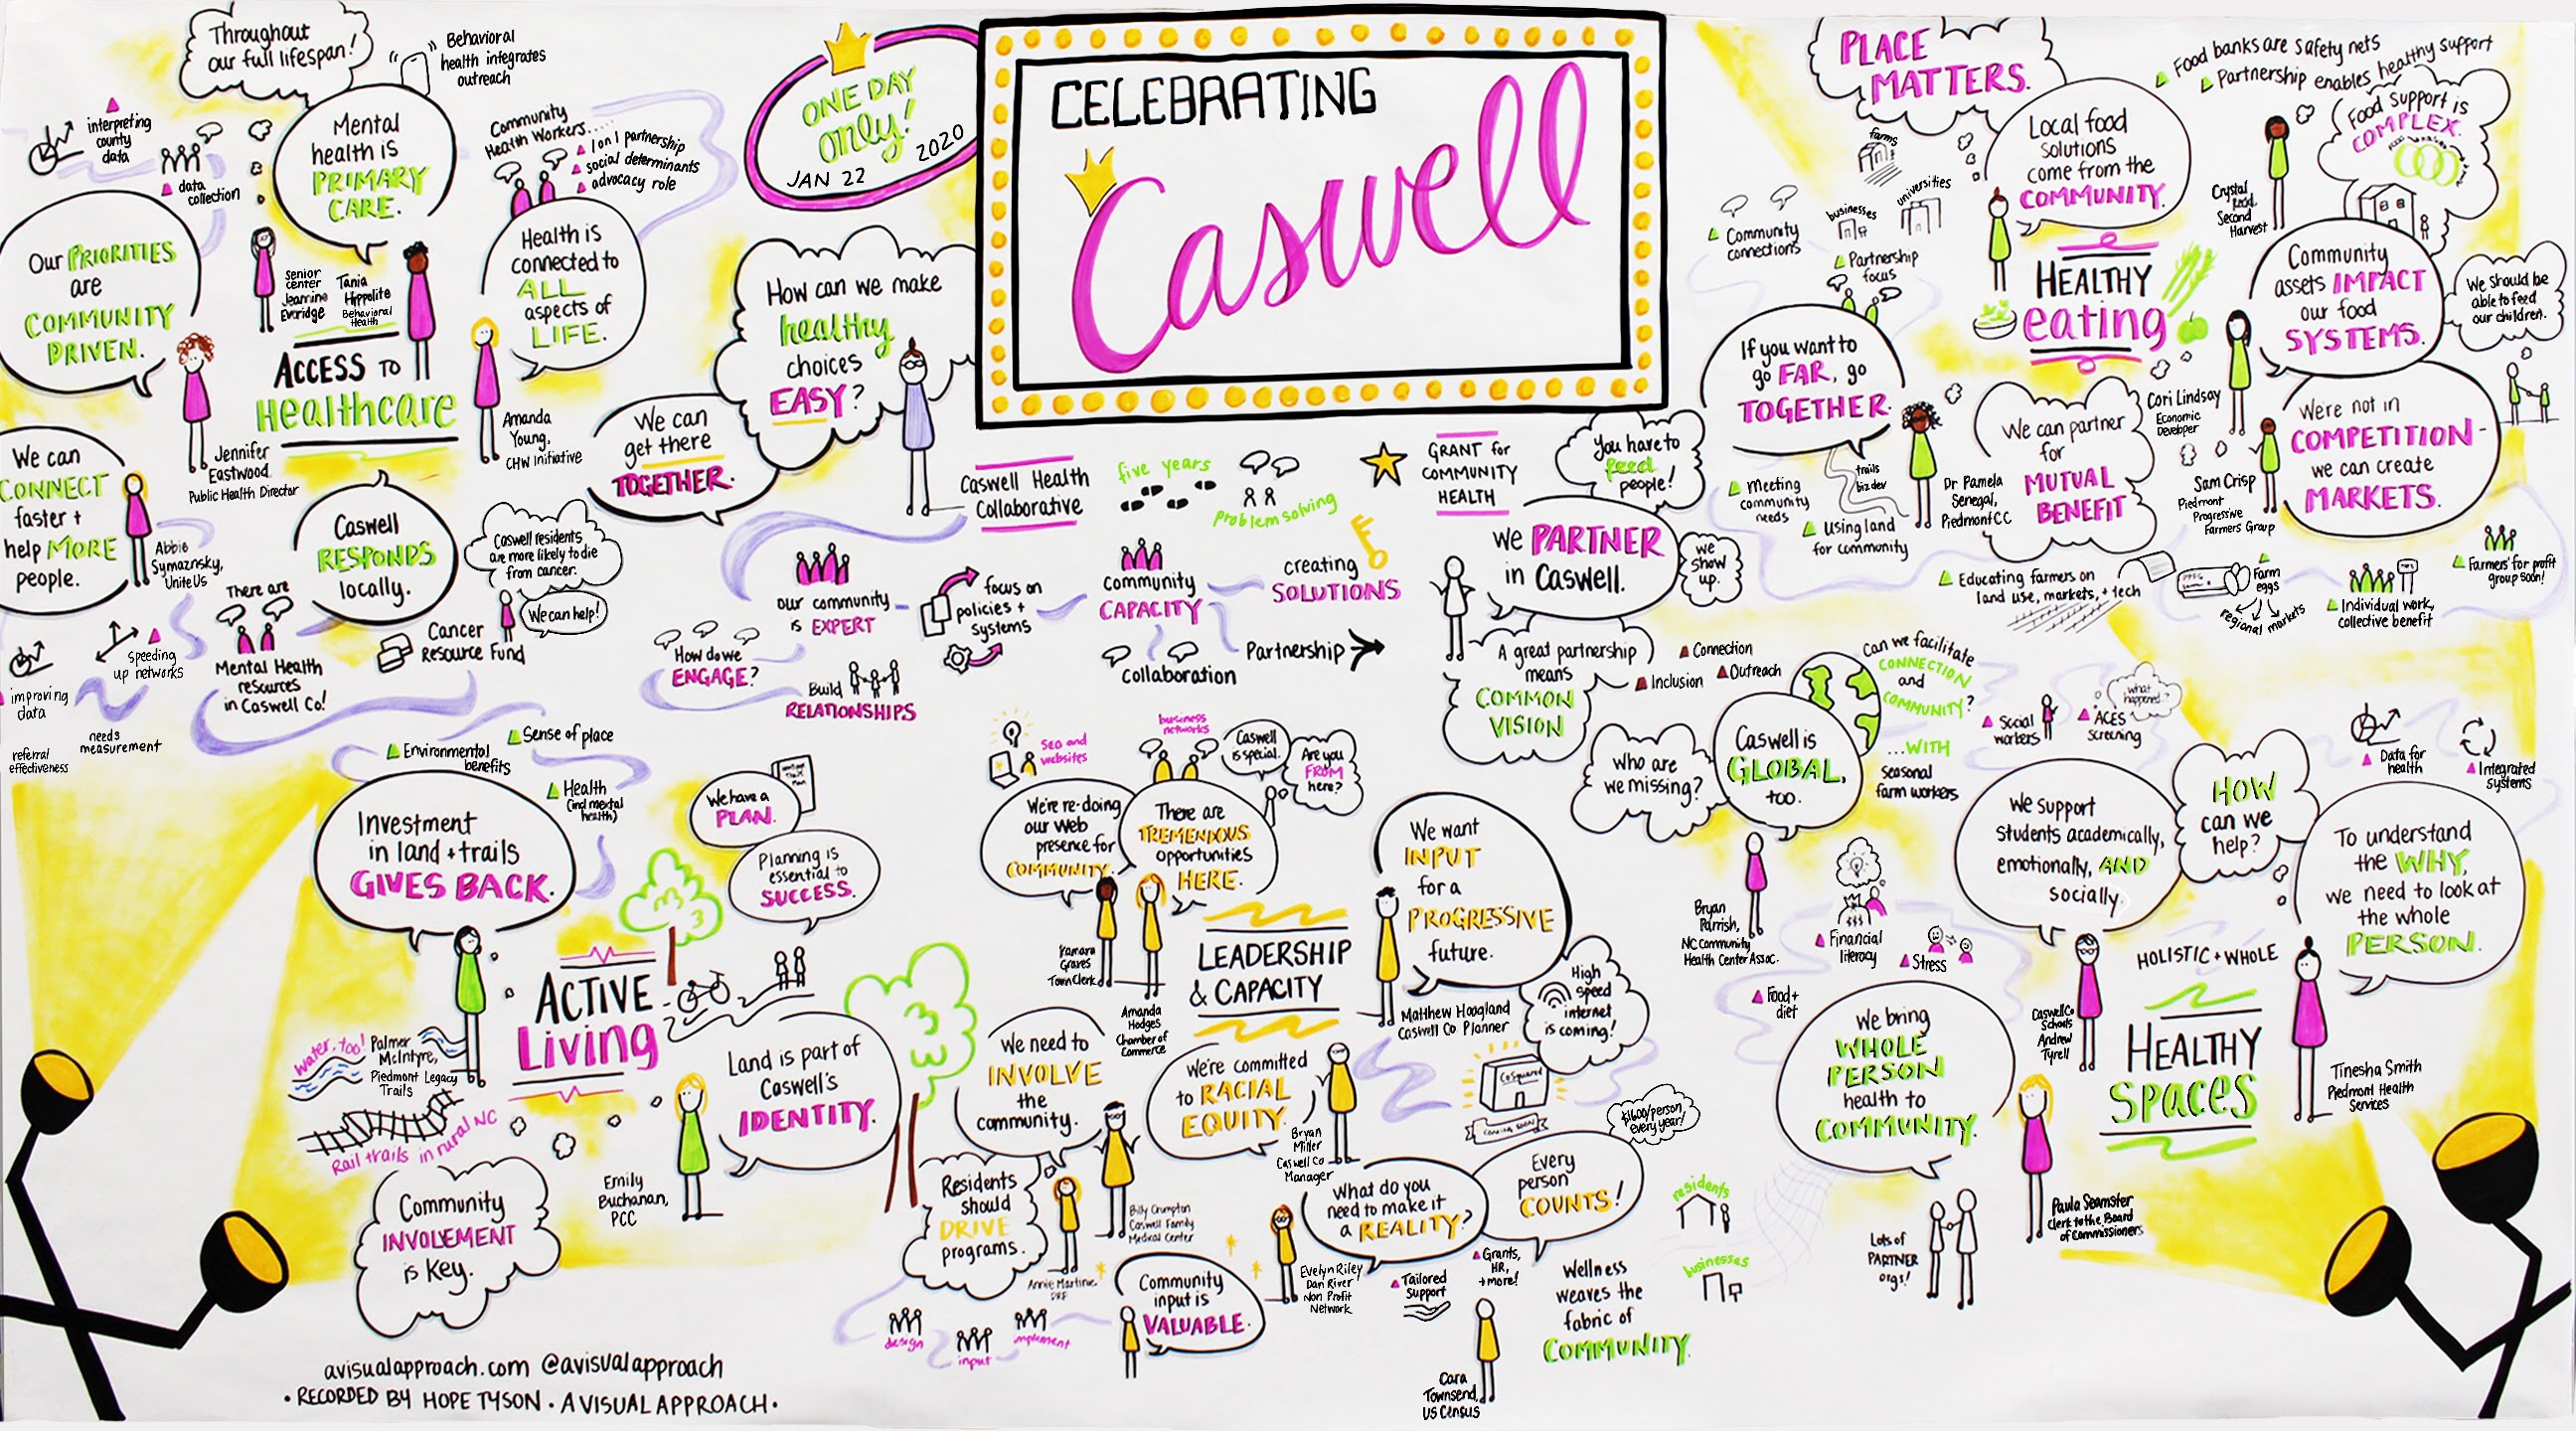 CELEBRATING
Caswell
ONE DAY
only!
JAN 22 2020
Throughout
our full lifespan!
Behavioral
health integrates
outreach
interpreting
county
data
data
collection
Mental
health is
PRIMARY
CARE.
Community
Health Workers.....
1 on 1 partnership
social determinants
advocacy role
Our PRIORITIES
are
COMMUNITY
DRIVEN.
Senior
center
Jeannine
Everidge
Tania
Hippolite
Behavioral
Health
Health is
connected to
ALL
aspects of
LIFE.
ACCESS TO
Healthcare
Jennifer
Eastwood
Public Health Director
Amanda
Young,
CHW Initiative
We can
CONNECT
faster +
help MORE
people.
Abbie
Symaznsky,
Unite Us
Caswell
RESPONDS
locally.
Caswell residents
are more likely to die
from cancer.
We can help!
Cancer
Resource Fund
There are
Mental Health
resources
in Caswell Co!
Speeding
up networks
improving
data
needs
measurement
referral
effectiveness
How can we make
healthy
choices
EASY?
We can
get there
TOGETHER.
Caswell Health
Collaborative
five years
problem solving
GRANT for
COMMUNITY
HEALTH
our community
is EXPERT
focus on
policies +
systems
community
CAPACITY
creating
SOLUTIONS
How do we
ENGAGE?
Build
RELATIONSHIPS
Collaboration
Partnership
You have to
feed
people!
we PARTNER
in Caswell.
we
show
up.
A great partnership
means
COMMON
VISION
Connection
Outreach
Inclusion
PLACE
MATTERS.
Food banks are safety nets
Partnership enables healthy support
farms
universities
businesses
Community
connections
Partnership
focus
Local food
solutions
come from the
COMMUNITY.
Food support is
COMPLEX.
Crystal
Second
Harvest
HEALTHY
eating
Community
assets IMPACT
our food
SYSTEMS.
We should be
able to feed
our children.
If you want to
go FAR, go
TOGETHER.
Meeting
community
needs
trails
biz dev
Using land
for community
Dr Pamela
Senegal,
Piedmont CC
We can partner
for
MUTUAL
BENEFIT
Cori Lindsay
Economic
Developer
We're not in
COMPETITION-
we can create
MARKETS.
Sam Crisp
Piedmont
Progressive
Farmers Group
Educating farmers on
land use, markets, + tech
Farm
eggs
regional markets
Individual work,
collective benefit
Farmers' for profit
group soon!
Can we facilitate
CONNECTION
and
COMMUNITY?
...WITH
seasonal
farm workers
Who are
we missing?
Caswell is
GLOBAL,
too.
Bryan
Parrish,
NC Community
Health Center Assoc.
Social
workers
ACES
screening
what
happened?
We support
students academically,
emotionally, AND
socially.
HOW
can we
help?
Data for
health
Integrated
systems
To understand
the WHY,
we need to look at
the whole
PERSON.
Financial
literacy
Stress
Food +
diet
HOLISTIC + WHOLE
HEALTHY
Spaces
Caswell Co
Schools
Andrew
Tyrell
Tinesha Smith
Piedmont Health
Services
We bring
WHOLE
PERSON
health to
COMMUNITY.
Paula Seamster
Clerk to the Board
of Commissioners
Lots of
PARTNER
orgs!
Environmental
benefits
Sense of place
Health
(incl mental
health)
Investment
in land + trails
GIVES BACK.
We have a
PLAN.
Planning is
essential to
SUCCESS.
ACTIVE
Living
Water, too!
Palmer
McIntyre,
Piedmont Legacy
Trails
Rail trails in rural NC
Land is part of
Caswell's
IDENTITY.
Emily
Buchanan,
PCC
Community
INVOLEMENT
is Key.
SEO and
websites
business
networks
Caswell
is special.
Are you
FROM
here?
We're re-doing
our web
presence for
COMMUNITY.
There are
TREMENDOUS
opportunities
HERE.
Yamara
Graves
Town Clerk
Amanda
Hodges
Chamber of
Commerce
LEADERSHIP
& CAPACITY
We want
INPUT
for a
PROGRESSIVE
future.
Matthew Hoagland
Caswell Co Planner
High
Speed
internet
is coming!
CoSquare
COMING SOON
We need to
INVOLVE
the
community.
We're committed
to RACIAL
EQUITY.
Bryan
Miller
Caswell Co
Manager
Residents
should
DRIVE
programs.
Billy Crumpton
Caswell Family
Medical Center
Annie Martinie
DRF
Community
input is
VALUABLE.
design
input
implement
What do you
need to make it
a REALITY?
Evelyn Riley
Dan River
Non Profit
Network
Tailored
Support
Grants,
HR,
+more!
Every
person
COUNTS!
$1600/person
every year!
residents
businesses
Wellness
weaves the
fabric of
COMMUNITY.
Cara
Townsend,
US Census
avisualapproach.com @avisualapproach
• RECORDED BY HOPE TYSON • A VISUAL APPROACH •